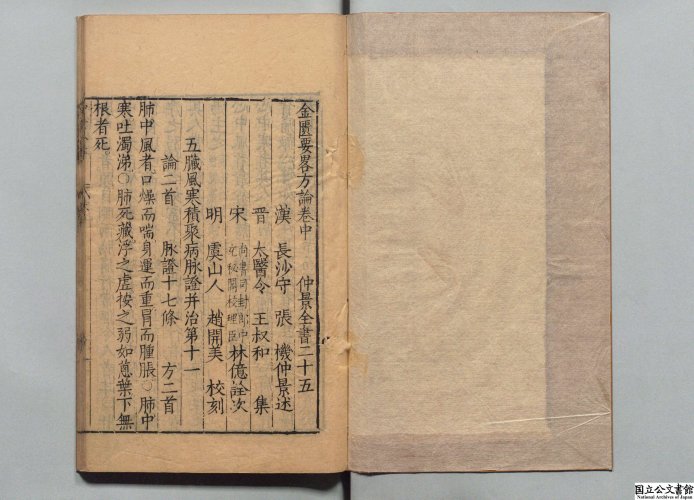 金匱要畧方論卷中　仲景全書二十五
漢　長沙守　張　機仲景述
晉　太醫令　王叔和　集
宋　尚書司封郎中充秘閣校理臣林億詮次
明　虞山人　趙開美　校刻
五臟風寒積聚病脉證并治第十一
論二首　脉證十七條　方二首
肺中風者口燥而喘身運而重冒而腫脹○肺中
寒吐濁涕○肺死藏浮之虛按之弱如葱葉下無
根者死
国立公文書館
National Archives of Japan